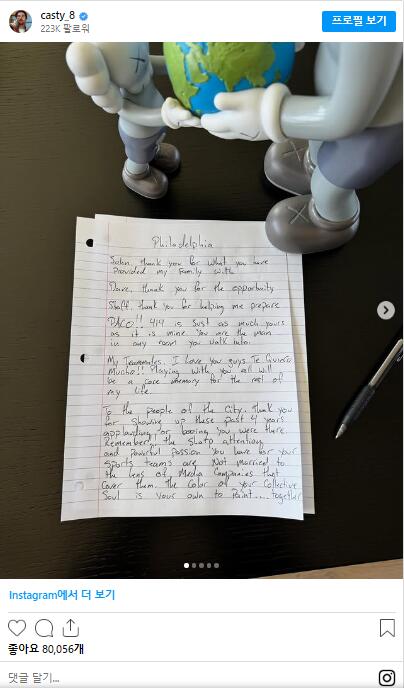 casty_8
223K 팔로워
프로필 보기
Philadelphia
John, thank you for what you have
provided my family with
Dave, thank you for the opportunity
Staff, thank you for helping me prepare
PACO!! 414 is Just as much yours
as it is mine. You are the man
in any room you walk into.
My Teammates. I love you guys. Te Quiero
Mucho!! Playing with you all will
be a core memory for the rest of
my life.
To the people of the City. Thank you
for showing up these past 4 years
applauding or booing you were there.
Remember!! the sharp attention
and powerful passion you have for your
sports teams are Not married to
the lens of Media Companies that
Cover them. The Color of your Collective
Soul is your own to Paint.... Together
Instagram에서 더 보기
좋아요 80,056개
댓글 달기...